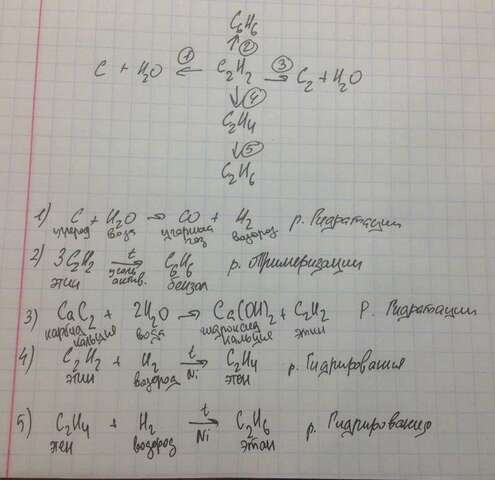 C₆H₆
↑ ②
C + H₂O ←① C₂H₂ →③ C₂ + H₂O
↓ ④
C₂H₄
↓ ⑤
C₂H₆
1) C + H₂O → CO + H₂ р. Гидратации
углерод вода угарный газ водород
2) 3C₂H₂ t→ C₆H₆ р. Тримеризации
этин уголь актив. бензол
3) CaC₂ + 2H₂O → Ca(OH)₂ + C₂H₂ Р. Гидратации
карбид кальция вода гидроксид кальция этин
4) C₂H₂ + H₂ t→ C₂H₄ р. Гидрирования
этин водород Ni этен
5) C₂H₄ + H₂ t→ C₂H₆ р. Гидрирования
тен водород Ni этан